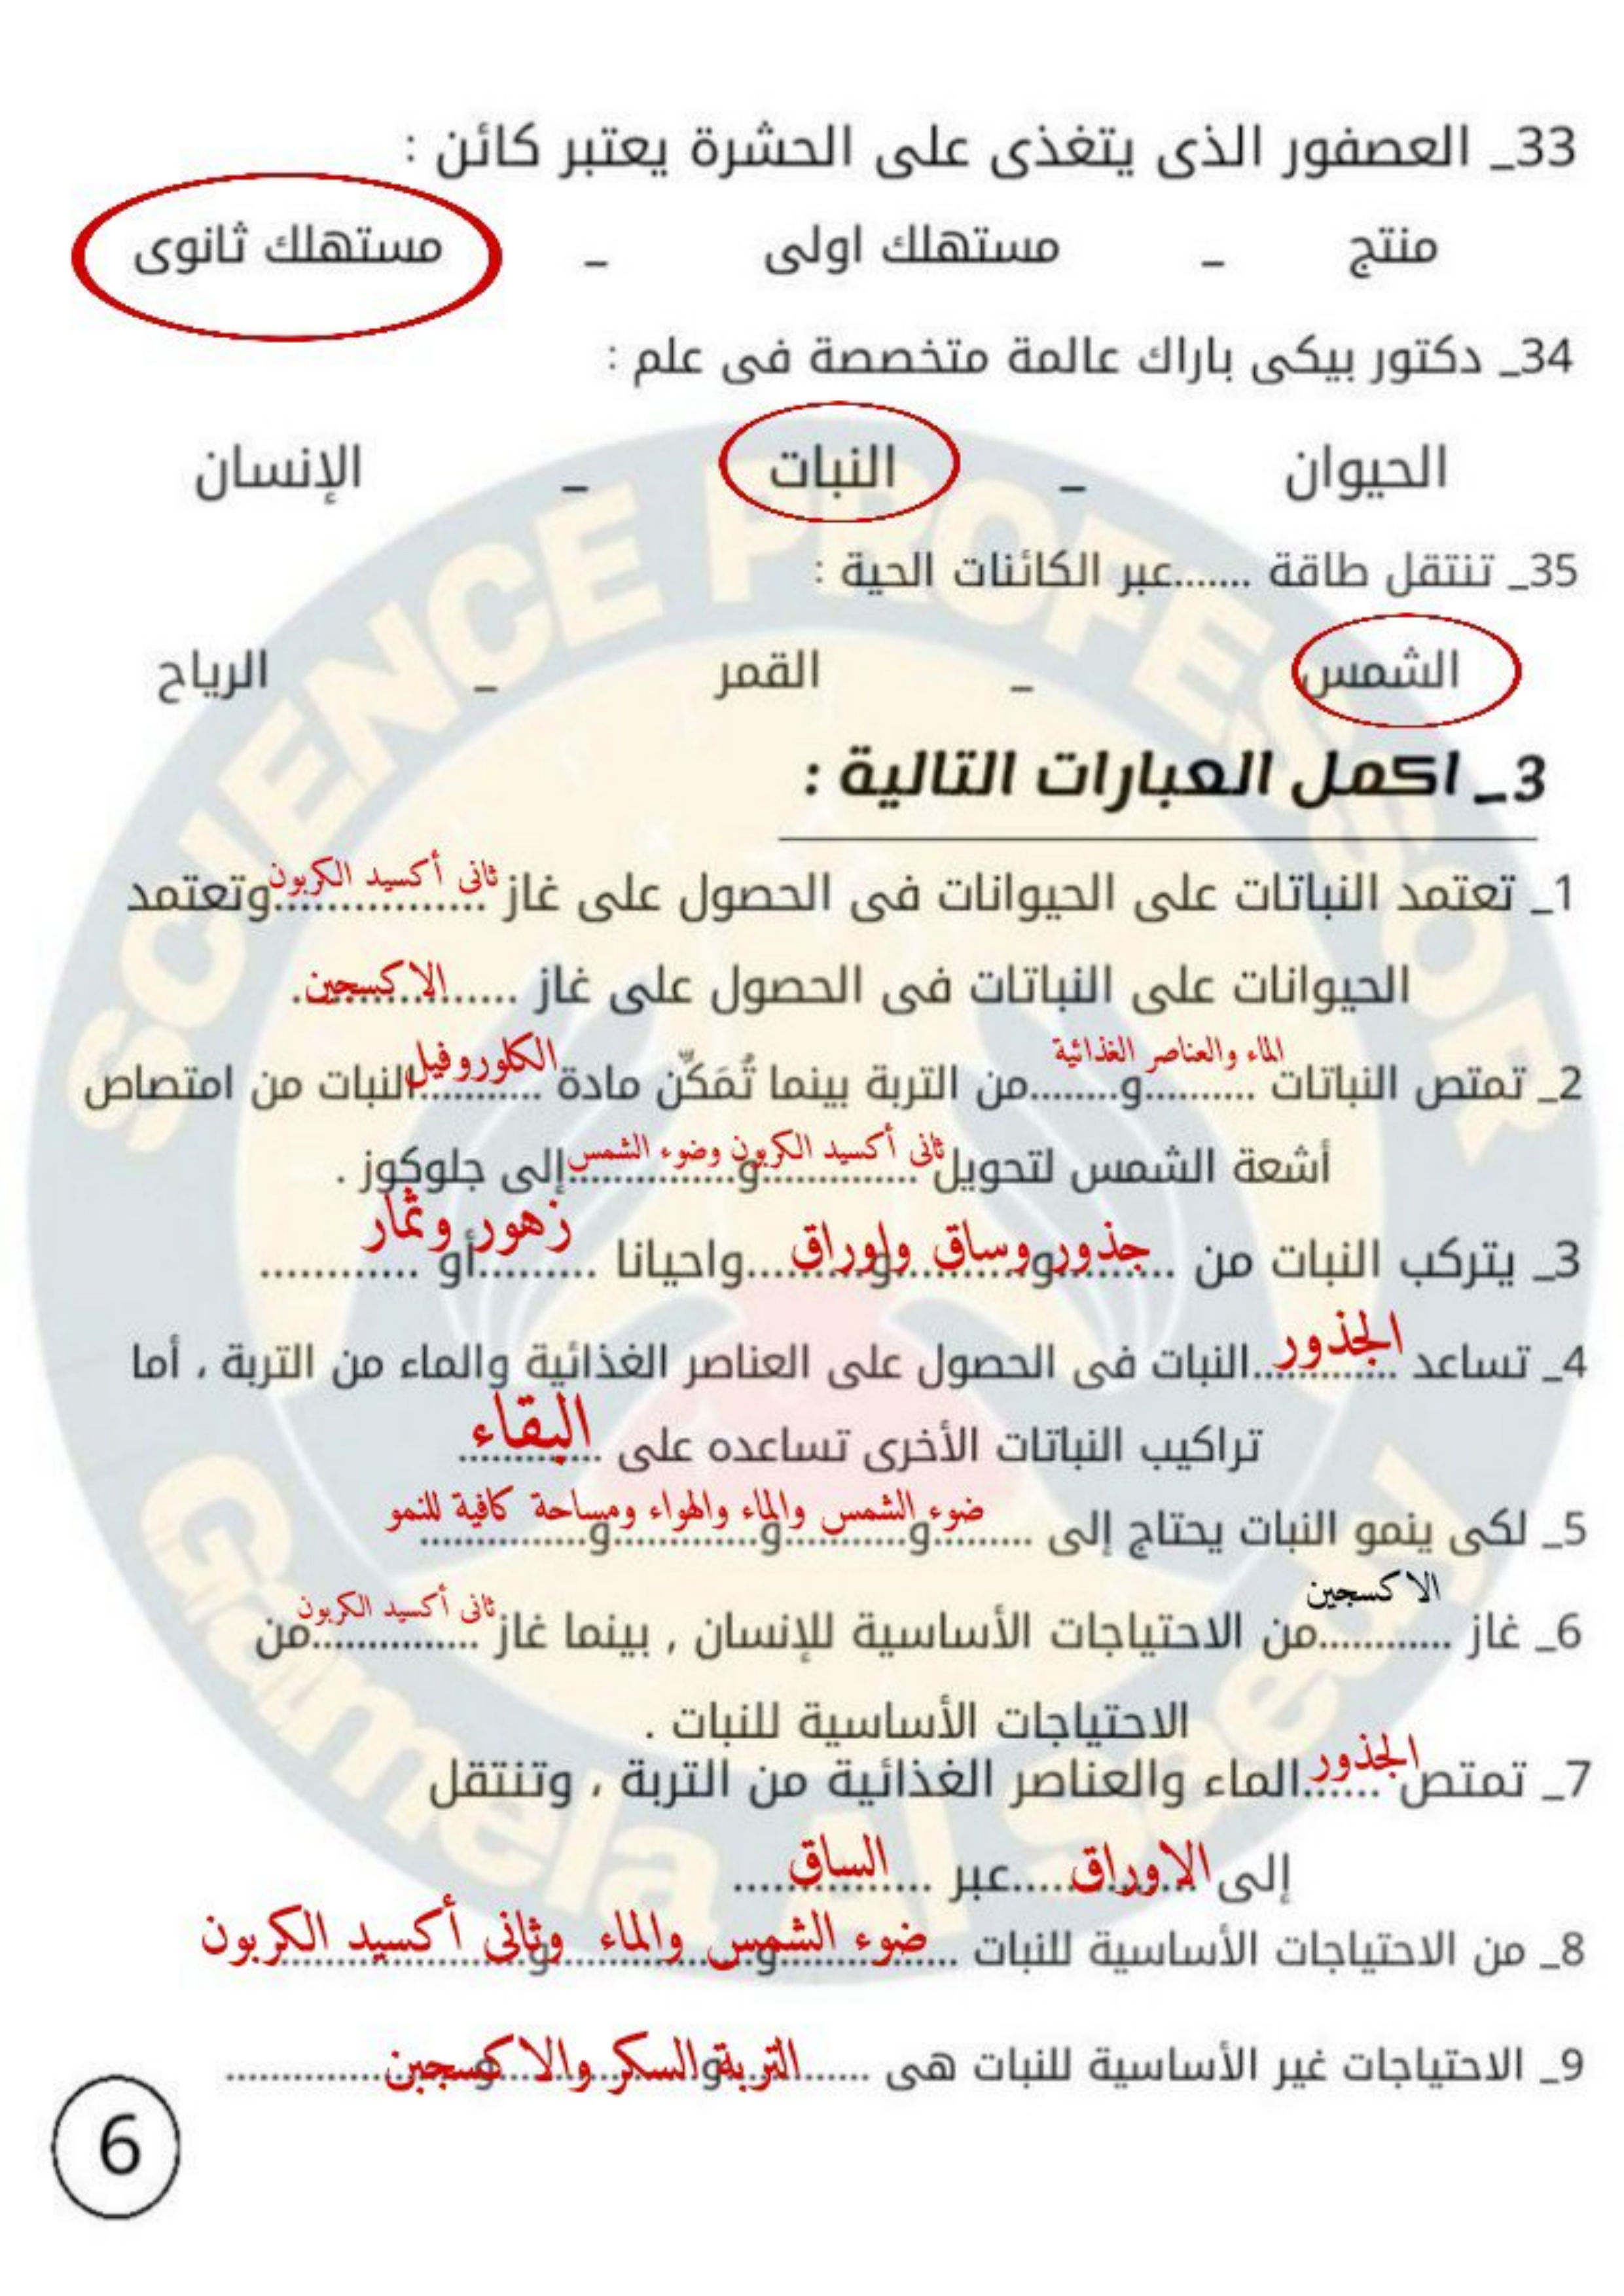 33_ العصفور الذى يتغذى على الحشرة يعتبر كائن :
منتج _ مستهلك اولى _ مستهلك ثانوى
34_ دكتور بيكى باراك عالمة متخصصة فى علم :
الحيوان _ النبات _ الإنسان
35_ تنتقل طاقة .......عبر الكائنات الحية :
الشمس _ القمر _ الرياح
3_ اكمل العبارات التالية :
1_ تعتمد النباتات على الحيوانات فى الحصول على غاز ثانى أكسيد الكربون وتعتمد
الحيوانات على النباتات فى الحصول على غاز الاكسجين.
2_ تمتص النباتات الماء والعناصر الغذائية من التربة بينما تُمَكّن مادة الكلوروفيل النبات من امتصاص
أشعة الشمس لتحويل ثانى أكسيد الكربون وضوء الشمس إلى جلوكوز .
3_ يتركب النبات من جذور وساق واوراق واحيانا زهور وثمار أو ............
4_ تساعد الجذور النبات فى الحصول على العناصر الغذائية والماء من التربة ، أما
تراكيب النباتات الأخرى تساعده على البقاء
5_ لكى ينمو النبات يحتاج إلى ضوء الشمس والماء والهواء ومساحة كافية للنمو
6_ غاز الاكسجين من الاحتياجات الأساسية للإنسان , بينما غاز ثانى أكسيد الكربون من
الاحتياجات الأساسية للنبات .
7_ تمتص الجذور الماء والعناصر الغذائية من التربة ، وتنتقل
إلى الاوراق عبر الساق
8_ من الاحتياجات الأساسية للنبات ضوء الشمس والماء وثانى أكسيد الكربون
9_ الاحتياجات غير الأساسية للنبات هى التربة والسكر والاكسجين
6
SCIENCE PROFESSOR
Gamela Al Seedy